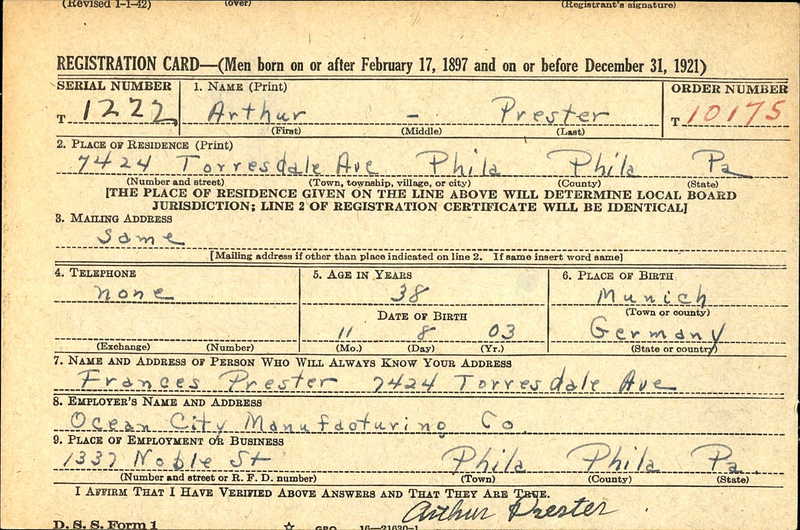 (Revised 1-1-42) (over) (Registrant's signature)
REGISTRATION CARD—(Men born on or after February 17, 1897 and on or before December 31, 1921)
SERIAL NUMBER 1. NAME (Print) ORDER NUMBER
T 1222 Arthur - Prester T 10175
(First) (Middle) (Last)
2. PLACE OF RESIDENCE (Print)
7424 Torresdale Ave Phila Phila Pa
(Number and street) (Town, township, village, or city) (County) (State)
[THE PLACE OF RESIDENCE GIVEN ON THE LINE ABOVE WILL DETERMINE LOCAL BOARD
JURISDICTION; LINE 2 OF REGISTRATION CERTIFICATE WILL BE IDENTICAL]
3. MAILING ADDRESS
Same
[Mailing address if other than place indicated on line 2. If same insert word same]
4. TELEPHONE 5. AGE IN YEARS 6. PLACE OF BIRTH
none 38 Munich
DATE OF BIRTH (Town or county)
11 8 03 Germany
(Exchange) (Number) (Mo.) (Day) (Yr.) (State or country)
7. NAME AND ADDRESS OF PERSON WHO WILL ALWAYS KNOW YOUR ADDRESS
Frances Prester 7424 Torresdale Ave
8. EMPLOYER'S NAME AND ADDRESS
Ocean City Manufacturing Co.
9. PLACE OF EMPLOYMENT OR BUSINESS
1337 Noble St Phila Phila Pa.
(Number and street or R. F. D. number) (Town) (County) (State)
I AFFIRM THAT I HAVE VERIFIED ABOVE ANSWERS AND THAT THEY ARE TRUE.
Arthur Prester
D. S. S. Form 1 GPO 16-21630-1